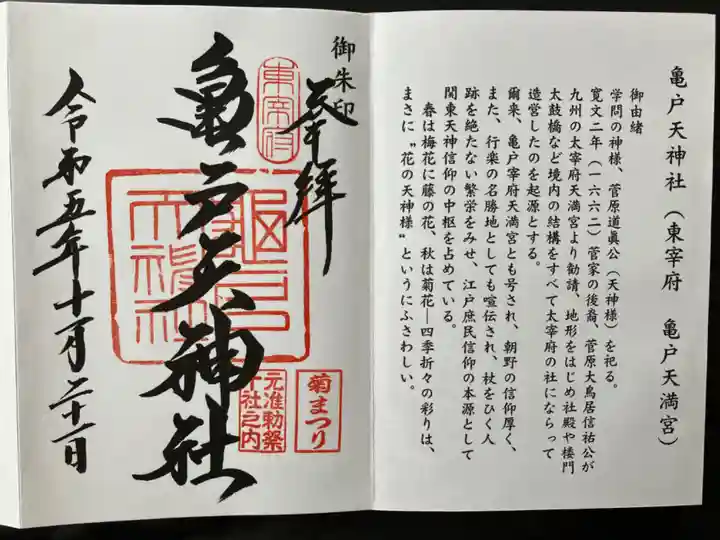 亀戸天神社（東宰府　亀戸天満宮）
御由緒
学問の神様、菅原道眞公（天神様）を祀る。
寛文二年（一六六二）菅家の後裔、菅原大鳥居信祐公が
九州の太宰府天満宮より勧請、地形をはじめ社殿や楼門
太鼓橋など境内の結構をすべて太宰府の社にならって
造営したのを起源とする。
爾来、亀戸宰府天満宮とも号され、朝野の信仰厚く、
また、行楽の名勝地としても喧伝され、杖をひく人
跡を絶たない繁栄をみせ、江戸庶民信仰の本源として
関東天神信仰の中枢を占めている。
春は梅花に藤の花、秋は菊花―四季折々の彩りは、
まさに〝花の天神様〟というにふさわしい。
御朱印
奉拝
東宰府
亀戸天神社
亀戸
天神社
菊まつり
元准勅祭
十社之内
令和五年十一月二十一日